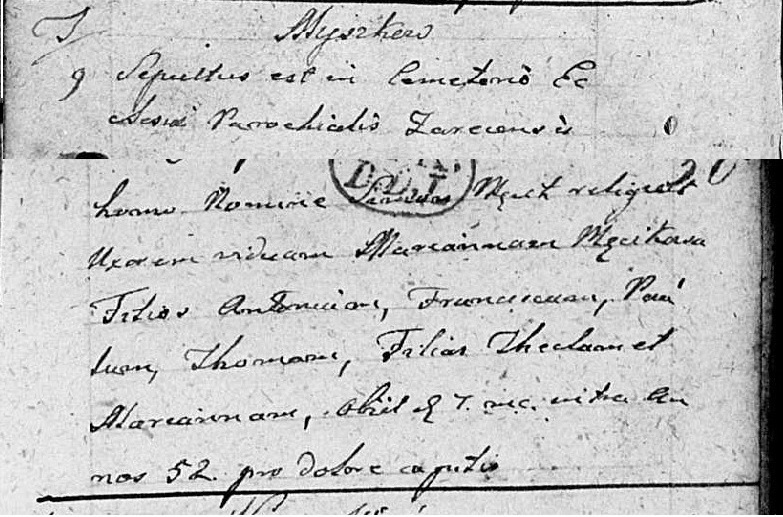 Myszkow
9 Sepultus est in Cemeterio Ec
clesiæ Parochialis Zarecensis 0
homo Nomine Męcik reliquit
Uxorem viduam Mariannam Męcikowa
Filios Antonium, Franciscum, Pau
lum, Thomam, Filias Theclam et
Mariannam, obiit 7. vitæ an
nos 52. pro dolore capitis